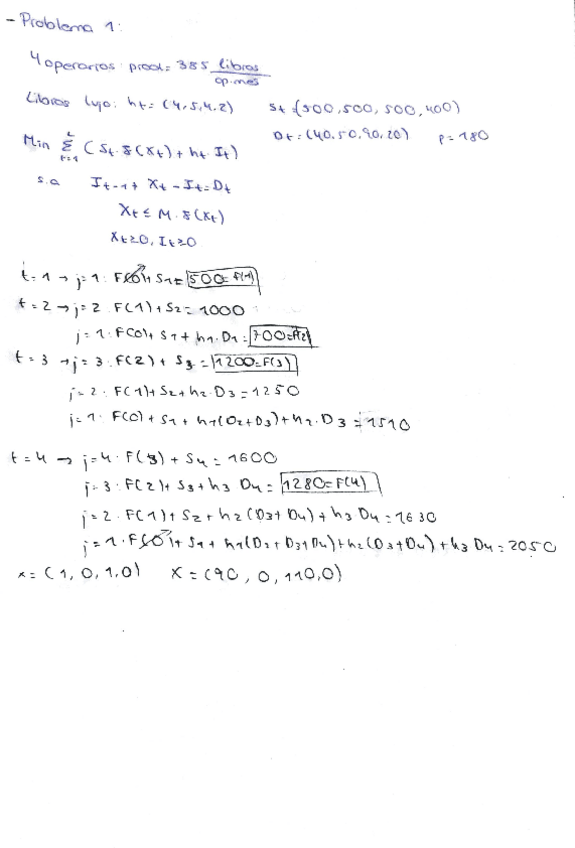 - Problema 1:
4 operarios prod = 385 libros / op.mes
Libros lujo: ht = (4,5,4,2) St = (500,500,500,400)
Dt = (40,50,90,20) p = 180
Min Σ t=1 (St·δ(Xt) + ht·It)
s.a It-1 + Xt - It = Dt
Xt ≤ M·δ(Xt)
Xt ≥ 0, It ≥ 0
t=1 → j=1: F(0) + S1 = 500 = F(1)
t=2 → j=2: F(1) + S2 = 1000
j=1: F(0) + S1 + h1·D2 = 700 = F(2)
t=3 → j=3: F(2) + S3 = 1200 = F(3)
j=2: F(1) + S2 + h2·D3 = 1250
j=1: F(0) + S1 + h1(D2+D3) + h2·D3 = 1510
t=4 → j=4: F(3) + S4 = 1600
j=3: F(2) + S3 + h3 D4 = 1280 = F(4)
j=2: F(1) + S2 + h2(D3+D4) + h3 D4 = 1630
j=1: F(0) + S1 + h1(D2+D3+D4) + h2(D3+D4) + h3 D4 = 2050
x = (1,0,1,0) X = (90,0,110,0)